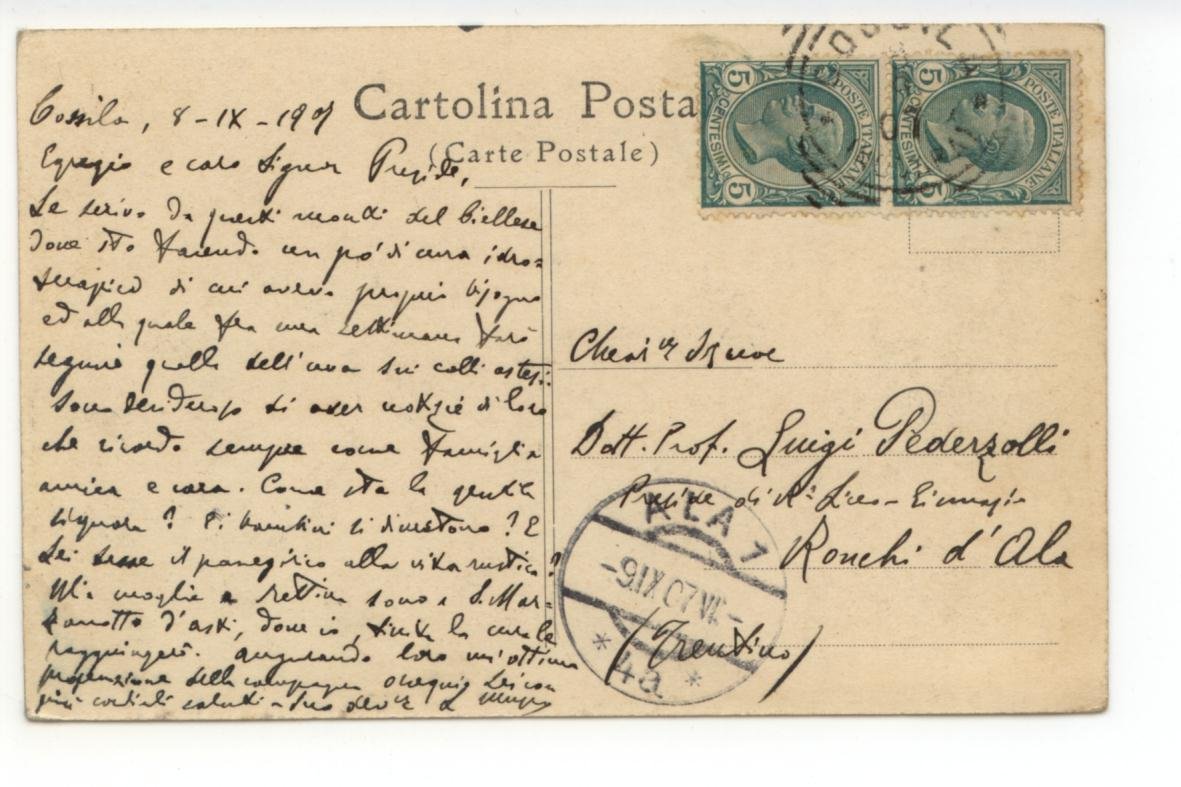 Cartolina Posta
(Carte Postale)
Cossila, 8-IX-1907
Egregio e caro Signor Preside,
Le scrivo da questi monti del biellese
dove sto facendo un po' di cura idro=
terapica di cui avevo proprio bisogno
ed alla quale fra una settimana farò
seguire quella dell'uva sui colli astesi:
Sono desideroso di aver notizie di loro
che ricordo sempre come famiglia
amica e cara. Come sta la gentile
signora? Ei bambini si divertono? E
Lei tesse il panegirico alla vita rustica?
Mia moglie e sono a S. Mar-
zanotto d'Asti, dove io, finita la cura le
raggiungerò. Augurando loro un'ottima
della campagna ossequio Lei con
più cordiali saluti - Suo dev.
5 POSTE ITALIANE 5
CENTESIMI
5 POSTE ITALIANE 5
CENTESIMI
07
Dott. Prof. Luigi Pederzolli
Preside di R. Liceo-Ginnasio
Ronchi d'Ala
(Trentino)
ALA 1
-9 IX 07 VI-
* 4a *